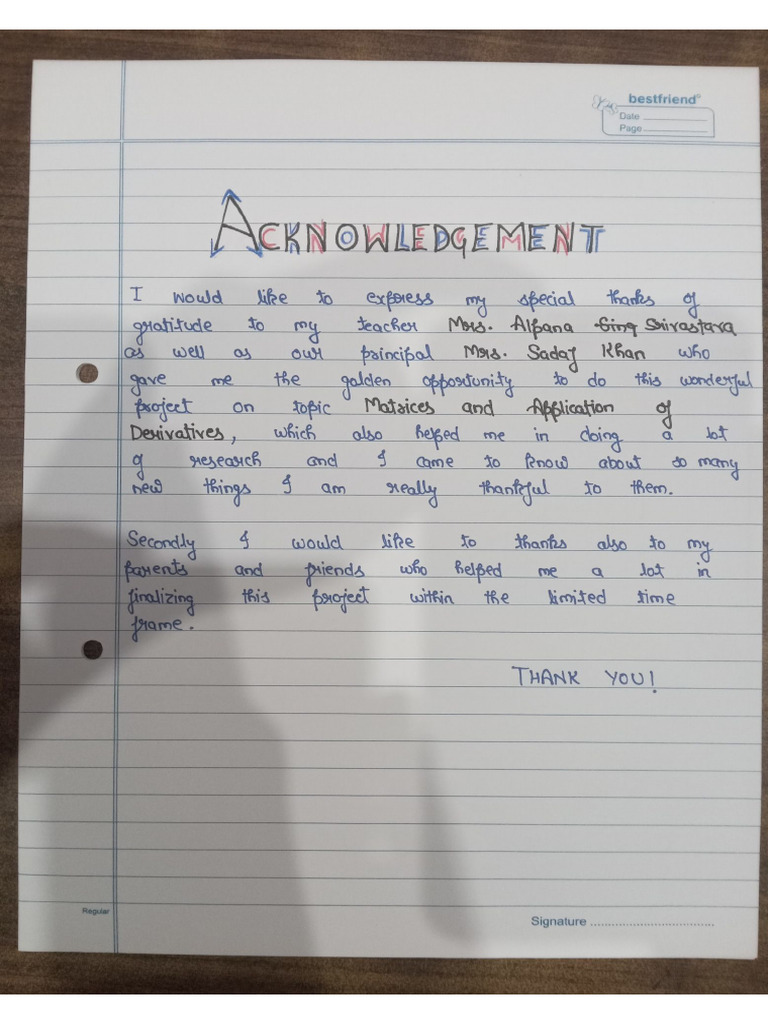 bestfriend
Date
Page
ACKNOWLEDGEMENT
I would like to express my special thanks of
gratitude to my teacher Mrs. Alpana Sing Srivastava
as well as our principal Mrs. Sadaf Khan who
gave me the golden opportunity to do this wonderful
project on topic Matrices and Application of
Derivatives, which also helped me in doing a lot
of research and I came to know about so many
new things I am really thankful to them.
Secondly I would like to thanks also to my
parents and friends who helped me a lot in
finalizing this project within the limited time
frame.
THANK YOU!
Regular
Signature ...................................